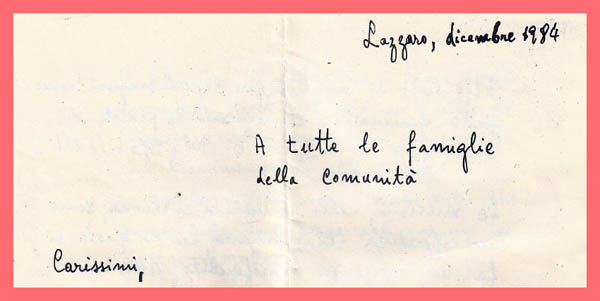 Lazzaro, dicembre 1984
A tutte le famiglie
della comunità
Carissimi,